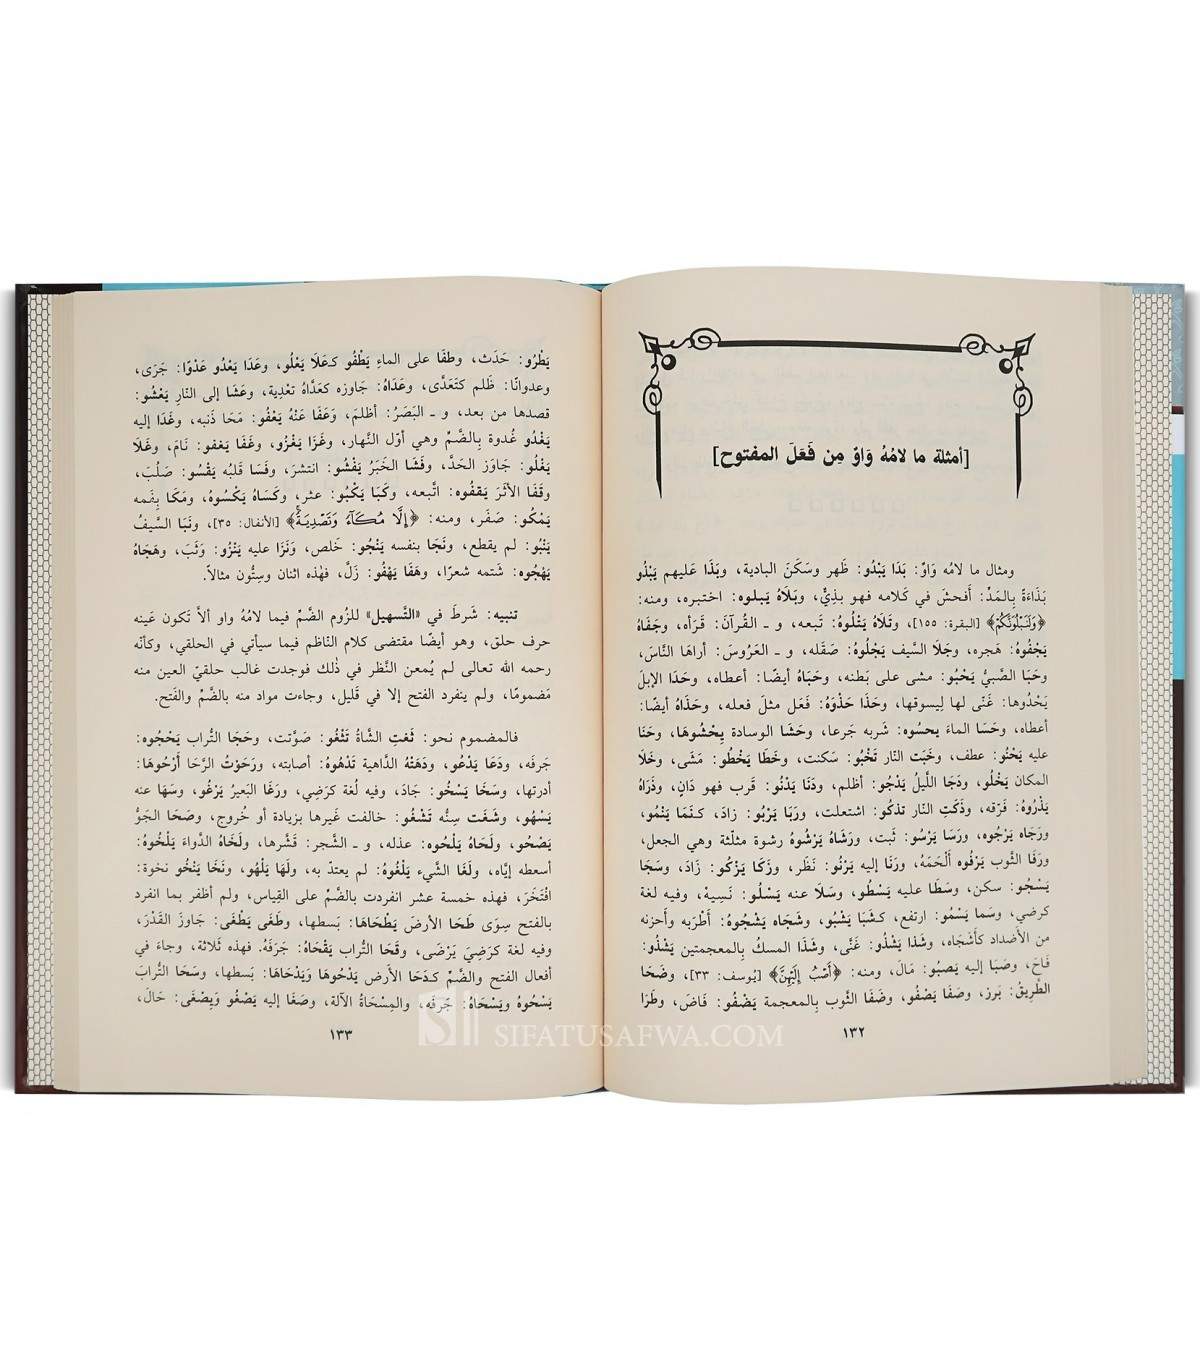 [أمثلة ما لامُهُ وَاوٌ مِن فَعَلَ المفتوح]
ومثال ما لامُه وَاوٌ: بَدَا يَبْدُو: ظَهر وسَكَنَ البادية، وبَذَا عَليهم يَبْذُو
بَذَاءَةً بِالمَدِّ: أَفحشَ في كَلامه فهو بذِيٌّ، وبَلَاهُ يَبلوه: اختبره، ومنه:
﴿وَلَنَبْلُوَنَّكُم﴾ [البقرة: ١٥٥]، وتَلَاهُ يَتْلُوهُ: تَبعه، و ـ القُرآنَ: قَرَأه، وجَفَاهُ
يَجْفُوهُ: هَجره، وجَلَا السَّيف يَجْلُوهُ: صَقَله، و ـ العَرُوسَ: أراهَا النَّاسَ،
وحَبَا الصَّبيُّ يَحْبُو: مشى على بَطنه، وحَبَاهُ أيضًا: أعطاه، وحَدَا الإبلَ
يَحْدُوها: غَنَّى لها لِيسوقها، وحَذَا حَذْوَهُ: فَعَل مثلَ فعله، وحَذَاهُ أيضًا:
أعطاه، وحَسَا الماءَ يحسُوه: شَربه جَرعا، وحَشَا الوسادة يحْشُوها، وحَنَا
عليه يَحْنُو: عطف، وخَبَت النّار تَخْبُو: سَكنت، وخَطَا يَخْطُو: مَشَى، وخَلَا
المكان يَخْلُو، ودَجَا اللَّيلُ يَدْجُو: أظلم، ودَنَا يَدْنُو: قَرب فهو دَانٍ، وذَرَاهُ
يَذْرُوهُ: فَرّقه، وذَكَتِ النّار تذكُو: اشتعلت، ورَبَا يَرْبُو: زادَ، كـنَمَا يَنْمُو،
ورَجَاه يَرْجُوه، ورَسَا يَرْسُو: ثَبت، ورَشَاهُ يَرْشُوهُ رشوة مثلّثة وهي الجعل،
ورَفَا الثَّوب يَرْفوه أَلْحَمَهُ، ورَنَا إليه يَرْنُو: نَظَر، وزَكَا يَزْكُو: زَادَ، وسَجَا
يَسْجُو: سكن، وسَطَا عليه يَسْطُو، وسَلَا عنه يَسْلُو: نَسِيهْ، وفيه لغة
كرضي، وسَما يَسْمُو: ارتفع، كـشَبَا يَشْبُو، وشَجَاه يَشْجُوهُ: أطْرَبه وأحزنه
من الأضداد كأشْجَاه، وشَدَا يَشْدُو: غَنَّى، وشَذَا المسكُ بِالمعجمتين يَشْذُو:
فَاحَ، وصَبَا إليه يَصبُو: مَالَ، ومنه: ﴿أَصْبُ إِلَيْهِنَّ﴾ [يُوسف: ٣٣]، وضَحَا
الطَّريقُ: بَرز، وصَفَا يَصْفُو، وضَفَا الثَّوب بِالمعجمة يَضْفُو: فَاضَ، وطَرَا
١٣٢
يَطْرُو: حَدَث، وطفَا على الماءِ يَطْفُو كـعَلَا يَعْلُو، وعَدَا يَعْدُو عَدْوًا: جَرَى،
وعدوانًا: ظَلم كتَعَدَّى، وعَدَاهُ: جَاوزه كعَدَّاهُ تعْدِية، وعَشَا إلى النّارِ يَعْشُو:
قصدها من بعد، و ـ البَصَرُ: أظلمَ، وعَفَا عَنْهُ يَعْفُو: مَحَا ذَنبه، وغَدَا إليه
يَغْدُو غُدوة بِالضَّمِّ وهي أوّل النَّهار، وغَزَا يَغْزُو، وغَفَا يَغفو: نَامَ، وغَلَا
يَغْلُو: جَاوَز الحَدَّ، وفَشَا الخَبَرُ يَفْشُو: انتشرَ، وقَسَا قلبُه يَقْسُو: صَلُبَ،
وقَفَا الأثَرَ يَقفُوه: اتّبعه، وكَبَا يَكْبُو: عثر، وكَسَاهُ يَكْسُوهُ، ومَكَا بِفَمه
يَمْكُو: صَفَر، ومنه: ﴿إِلَّا مُكَآءً وَتَصْدِيَةً﴾ [الأنفال: ٣٥]، ونَبَا السَّيفُ
يَنْبُو: لم يقطع، ونَجَا بنفسه يَنْجُو: خَلص، ونَزَا عليه يَنْزُو: وَثَبَ، وهَجَاهُ
يَهْجُوه: شَتمه شعرًا، وهَفَا يَهْفُو: زَلَّ، فهٰذه اثنان وسِتُّون مثالاً.
تنبيه: شَرطَ في «التَّسهيل» للزُوم الضَّمِّ فيما لامُهُ واو ألاَّ تَكون عَينه
حرف حلق، وهو أيضًا مقتضى كلام النّاظم فيما سيأتي في الحلقي، وكأنّه
رحمه الله تعالى لم يُمعن النَّظر في ذٰلك فوجدت غالب حلقيّ العين منه
مَضمومًا، ولم ينفرد الفتح إلا في قَليل، وجاءت مواد منه بالضَّمِّ والفَتح.
فالمضموم نحو: ثَغتِ الشَّاةُ تَثْغُو: صَوَّتت، وحَجَا التُّراب يَحْجُوه:
جَرفَه، ودَعَا يَدْعُو، ودَهَتْهُ الدَّاهية تَدْهُوهُ: أصابته، ورَحَوْتُ الرَّحَا أَرْحُوهَا:
أدرتها، وسَخَا يَسْخُو: جَادَ، وفيه لُغة كرَضِي، ورَغَا البَعيرُ يَرْغُو، وسَهَا عنه
يَسْهُو، وشَغَت سِنُّه تَشْغُو: خالفت غَيرها بزيادة أو خُروج، وصَحَا الجَوُّ
يَصْحُو، ولَحَاهُ يَلْحُوهُ: عذله، و ـ الشَّجر: قَشَّرها، ولَخَاهُ الدَّواءَ يَلْخُوهُ:
أسعطه إيَّاه، ولَغَا الشَّيء يَلْغُوهُ: لم يعتدّ به، ولَهَا يَلْهُو، ونَخَا يَنْخُو نخوة:
افْتَخَرَ، فهٰذه خمسة عشر انفردت بالضَّمِّ على القِياس، ولم أظفر بما انفرد
بالفتح سِوَى طَحَا الأرضَ يَطْحَاهَا: بَسطها، وطَغَى يَطْغَى: جَاوزَ القَدْرَ،
وفيه لغة كرَضِيَ يَرْضَى، وقَحَا التُّراب يَقْحَاهُ: جَرَفَهُ. فهذه ثَلاثة، وجاءَ في
أفعال الفتح والضَّمِّ كـدَحَا الأرض يَدْحُوهَا وَيَدْحَاهَا: بَسطها، وسَحَا التُّرابَ
يَسْحُوهُ ويَسْحَاهُ: جَرفَه، والمِسْحَاةُ الآلة، وصَغَا إليه يَصْغُو وَيِصْغَى: حَالَ،
١٣٣
SIFATUSAFWA.COM